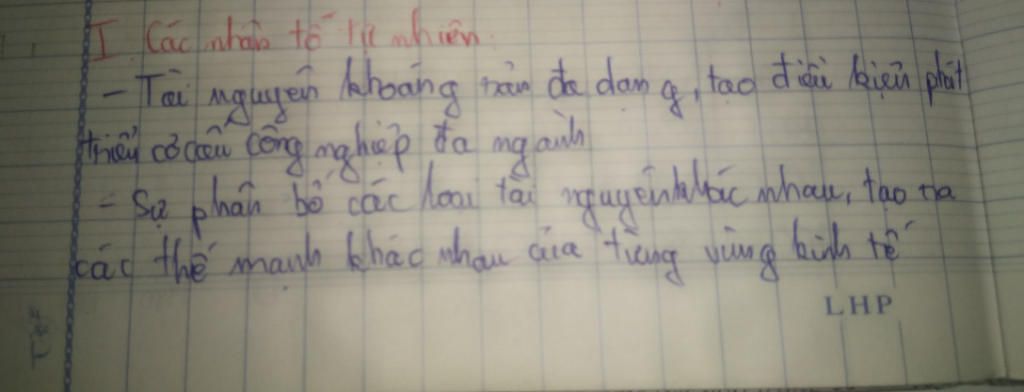 I. Các nhân tố tự nhiên.
- Tài nguyên khoáng sản đa dạng, tạo điều kiện phát
triển cơ cấu công nghiệp đa ngành
- Sự phân bố các loại tài nguyên khác nhau, tạo ra
các thế mạnh khác nhau của từng vùng kinh tế
LHP